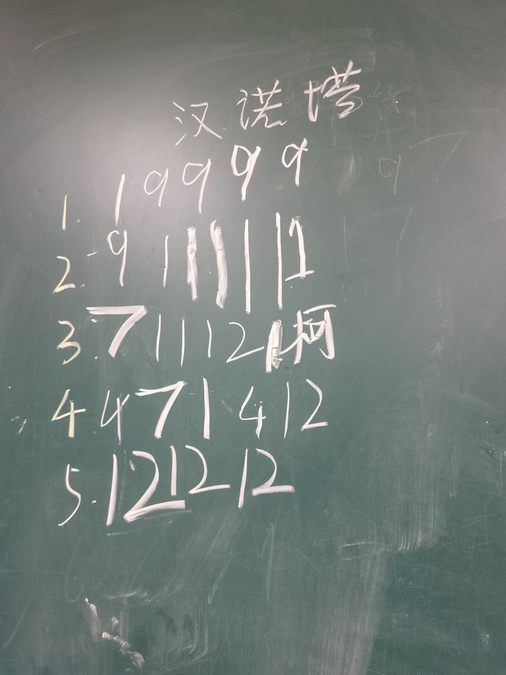 汉诺塔
1. 19999
97
2. 9111111
3. 711121柯
4 471412
5. 121212